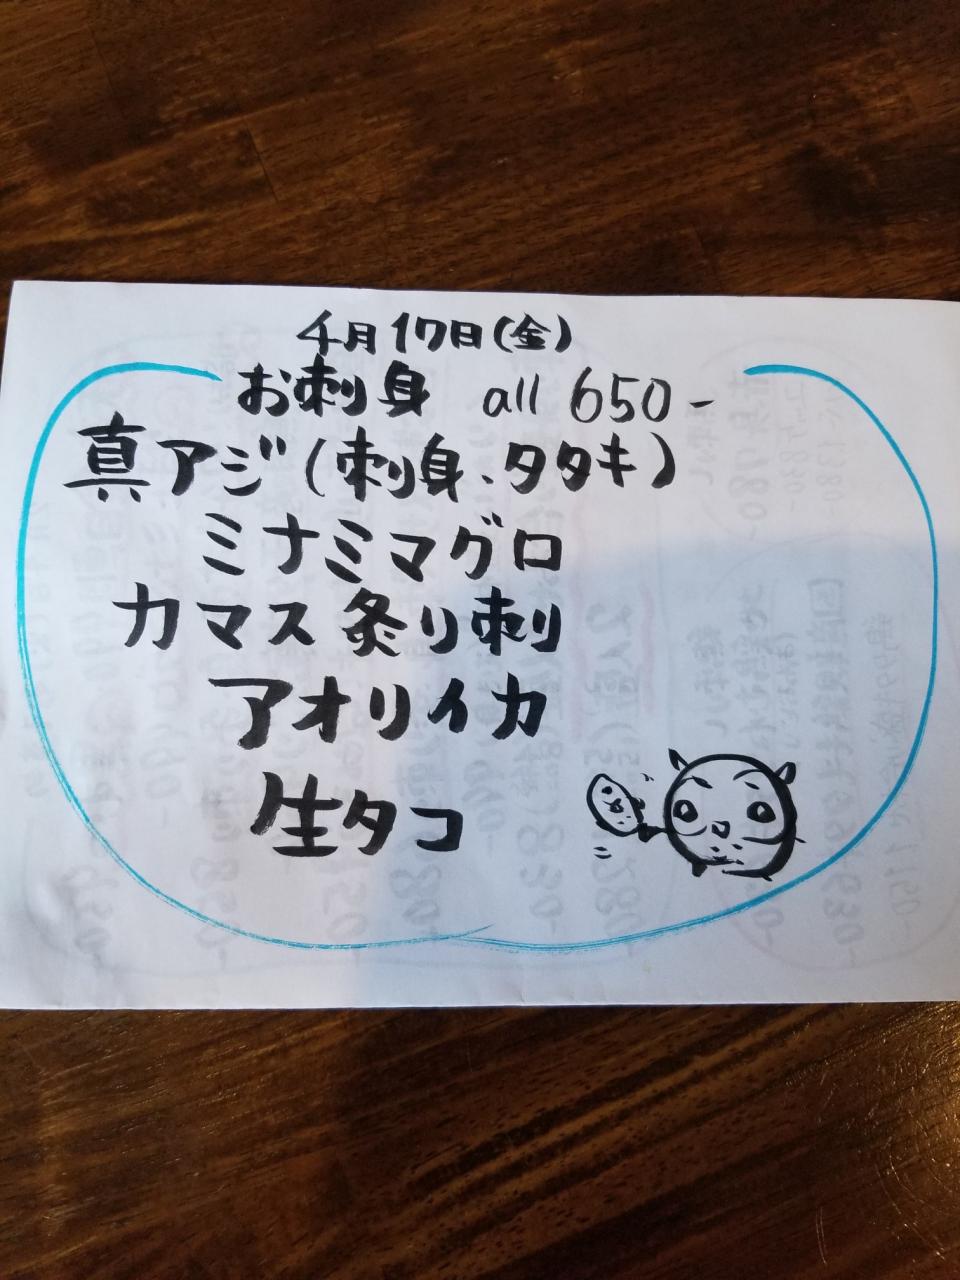 4月17日(金)
お刺身 all 650-
真アジ(刺身、タタキ)
ミナミマグロ
カマス炙り刺
アオリイカ
生タコ